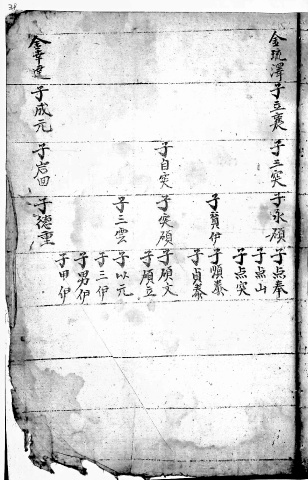 38
金琉澤 子互裏 子三突 子永碩 子点奉
子点山
子点突
子贊伊 子順泰
子貞泰
子自突 子突碩 子碩文
子碩立
子三雲 子以元
子三伊
子男伊
子甲伊
金幸建 子成元 子岩回 子德重